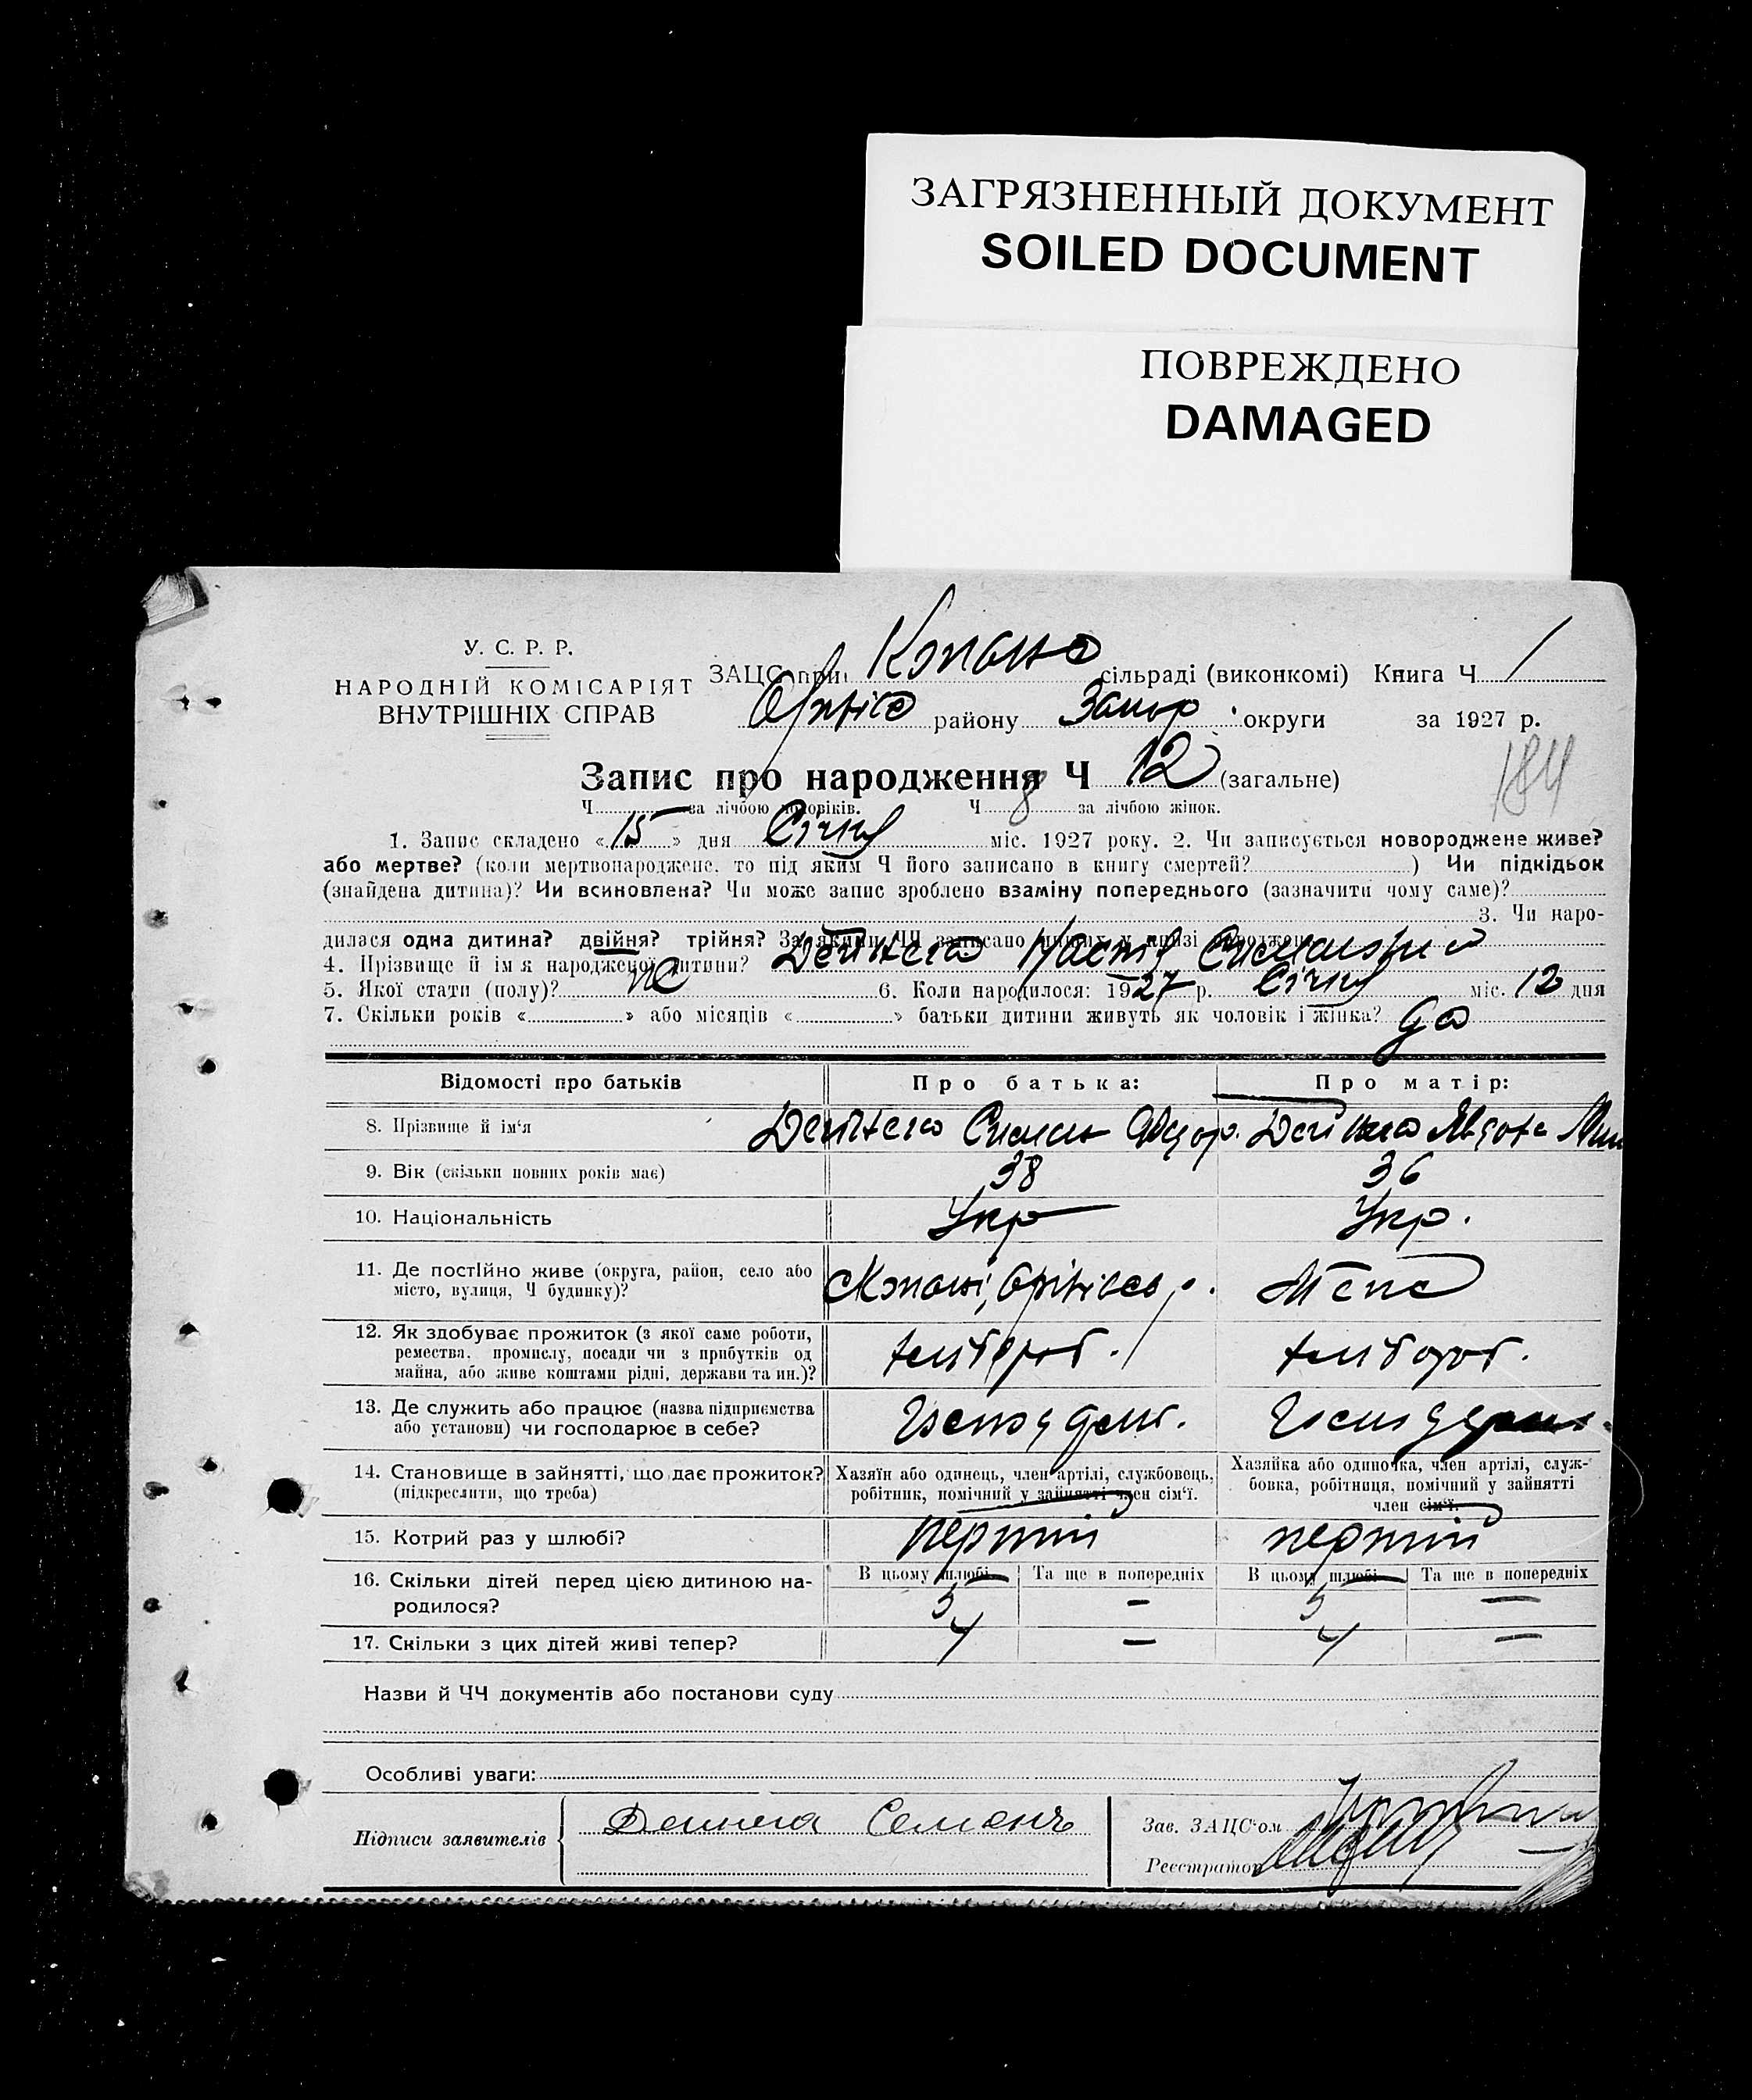 ЗАГРЯЗНЕННЫЙ ДОКУМЕНТ
SOILED DOCUMENT
ПОВРЕЖДЕНО
DAMAGED
У. С. Р. Р.
НАРОДНІЙ КОМІСАРІЯТ
ВНУТРІШНІХ СПРАВ
ЗАЦС при сільраді (виконкомі) Книга Ч 1
району Запор. округи за 1927 р.
184
Запис про народження Ч 12 (загальне)
Ч за лічбою чоловіків. Ч 8 за лічбою жінок.
1. Запис складено «15» дня Січня міс. 1927 року. 2. Чи записується новороджене живе?
або мертве? (коли мертвонароджене, то під яким Ч його записано в книгу смертей? ) Чи підкідьок
(знайдена дитина)? Чи всиновлена? Чи може запис зроблено взаміну попереднього (зазначити чому саме)?
3. Чи наро-
дилася одна дитина? двійня? трійня? За якими ЧЧ записано інших у книзі
4. Прізвище й ім'я народженої дитини? Дейнега Настя
5. Якої стати (полу)? ж 6. Коли народилося: 1927 р. Січня міс. 12 дня
7. Скільки років « » або місяців « » батьки дитини живуть як чоловік і жінка? да
Відомості про батьків
Про батька:
Про матір:
8. Прізвище й ім'я Дейнега Симон Федор. Дейнега Явдоха
9. Вік (скільки повних років має) 38 36
10. Національність Укр Укр.
11. Де постійно живе (округа, район, село або
місто, вулиця, Ч будинку)?
12. Як здобуває прожиток (з якої саме роботи,
ремества, промислу, посади чи з прибутків од
майна, або живе коштами рідні, держави та ин.)?
13. Де служить або працює (назва підприємства
або установи) чи господарює в себе?
14. Становище в зайнятті, що дає прожиток?
(підкреслити, що треба)
Хазяїн або одинець, член артілі, службовець,
робітник, помічний у зайнятті член сім'ї.
Хазяйка або одиночка, член артілі, служ-
бовка, робітниця, помічний у зайнятті
член сім'ї.
15. Котрий раз у шлюбі? перший перший
16. Скільки дітей перед цією дитиною на-
родилося?
В цьому шлюбі Та ще в попередніх В цьому шлюбі Та ще в попередніх
5 — 5 —
17. Скільки з цих дітей живі тепер? 4 — 4 —
Назви й ЧЧ документів або постанови суду
Особливі уваги:
Підписи заявителів
Зав. ЗАЦС'ом
Реєстратор